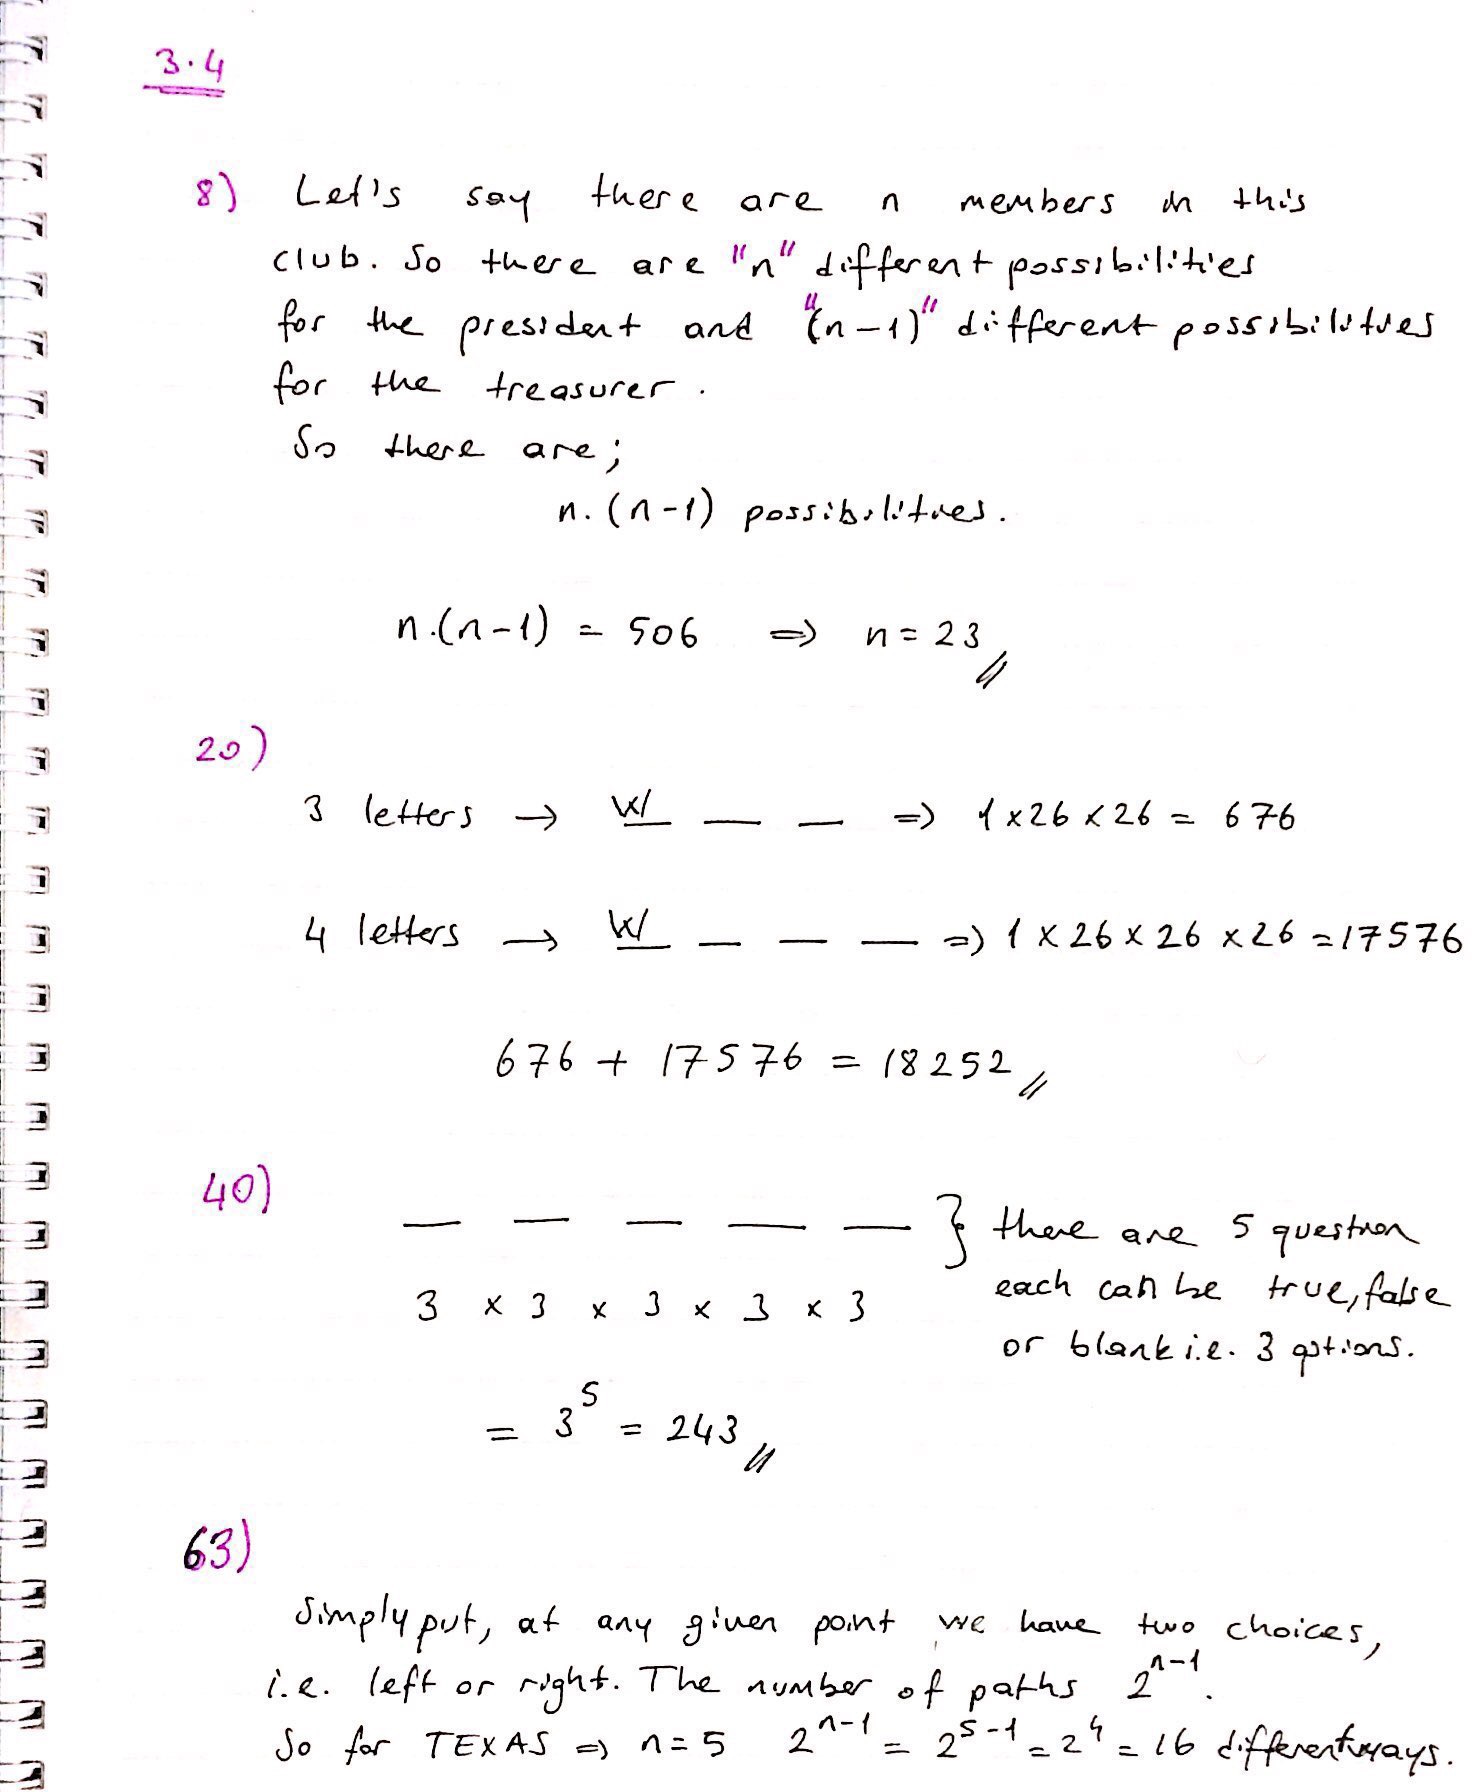 3.4
8) Let's say there are n members in this
club. So there are "n" different possibilities
for the president and "(n-1)" different possibilities
for the treasurer.
So there are;
n.(n-1) possibilities.
n.(n-1) = 506 => n = 23
20)
3 letters → W _ _ => 1 x 26 x 26 = 676
4 letters → W _ _ _ => 1 x 26 x 26 x 26 = 17576
676 + 17576 = 18252
40)
_ _ _ _ _ } there are 5 question
each can be true, false
3 x 3 x 3 x 3 x 3
or blank i.e. 3 options.
= 3^5 = 243
63)
Simply put, at any given point we have two choices,
i.e. left or right. The number of paths 2^n-1.
So for TEXAS => n = 5 2^n-1 = 2^5-1 = 2^4 = 16 different ways.